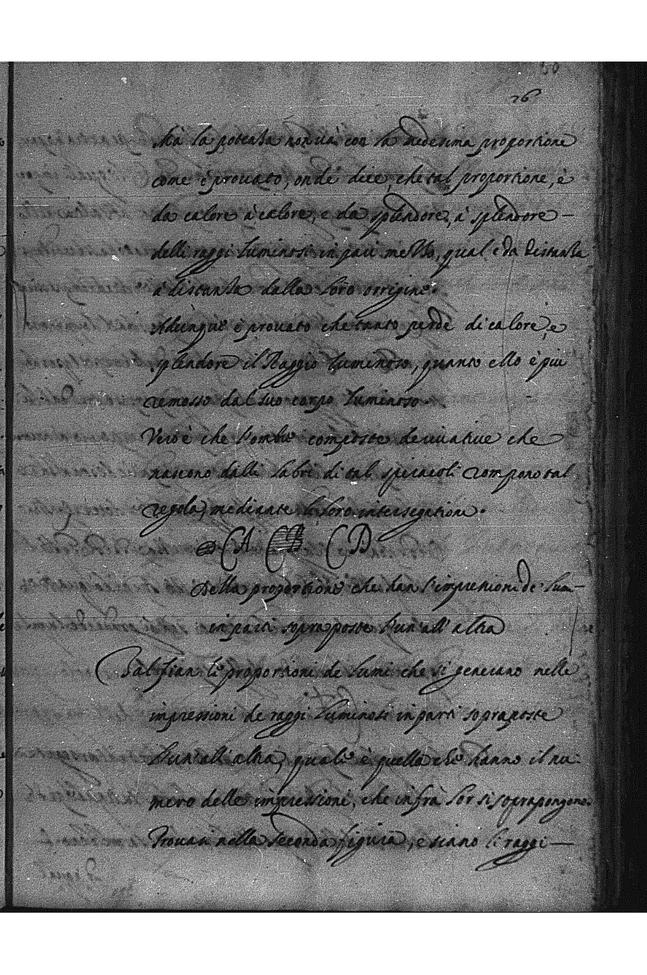 26
Mà la potenza non và con la medesima proportione
come è prouato, onde dice, che tal proportione, è
da calore à calore, e da splendore, à splendore
delli raggi luminosi in pari mezzo, qual è da distanza
à distanza dalla loro origine.
Adunque è prouato che tanto perde di calore, e
splendore il Raggio luminoso, quanto ello è più
remosso dal suo corpo luminoso
Vero è che l'ombre composte deriuatiue che
nascono dalli labri di tal spiracoli rompono tal
regola, mediante le loro intersegatione.
CA CB CD
Della proportione che han l'impressioni de lum-
in parti sopraposte l'un all'altra
Tal sian le proportioni de lumi che si generano nelle
impressioni de raggi luminosi in parti sopraposte
l'un all'altra, qual è quella che hanno il nu-
mero delle impressioni, che infrà lor si soprapongono.
Trouasi nella seconda figura, e siano li raggi